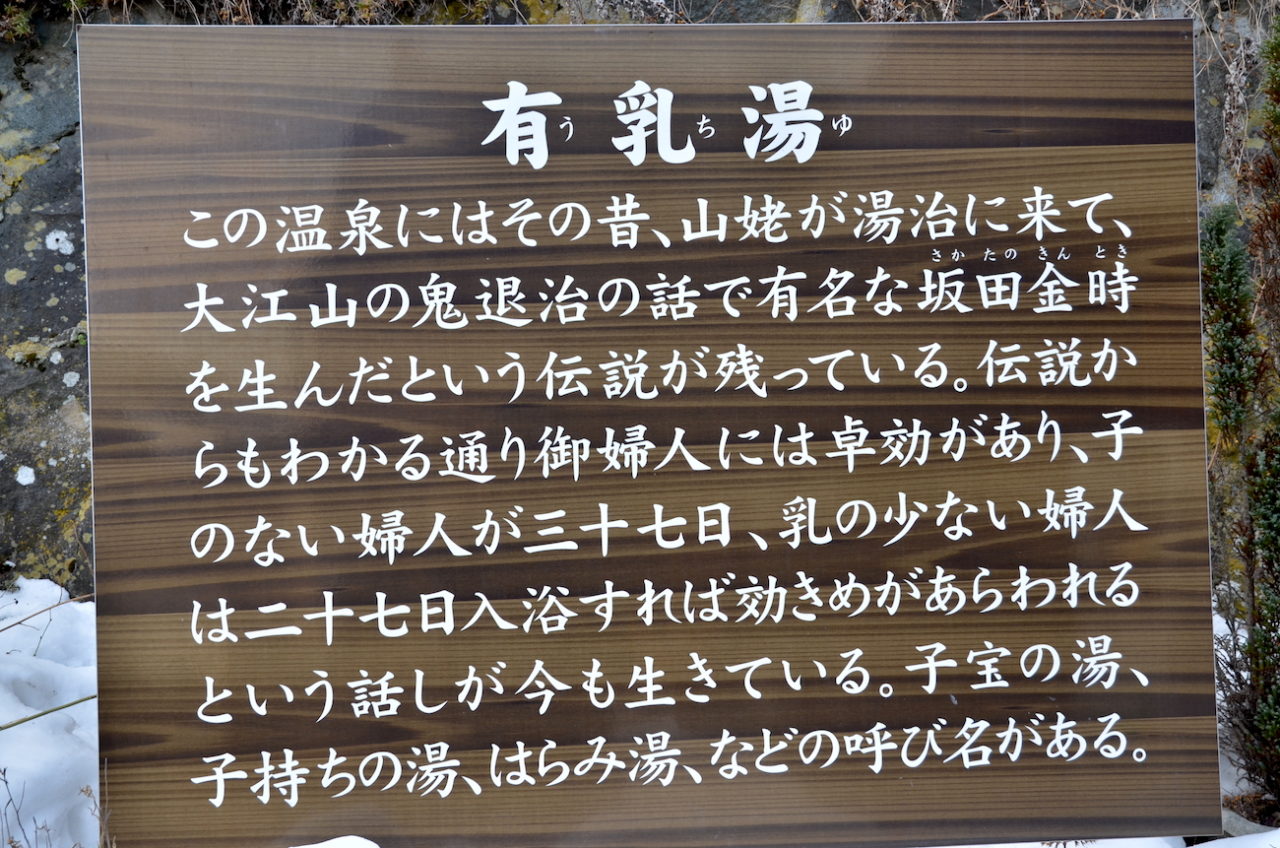 有乳湯
うちゆ
この温泉にはその昔、山姥が湯治に来て、
さかたのきんとき
大江山の鬼退治の話で有名な坂田金時
を生んだという伝説が残っている。伝説か
らもわかる通り御婦人には卓効があり、子
のない婦人が三十七日、乳の少ない婦人
は二十七日入浴すれば効きめがあらわれる
という話しが今も生きている。子宝の湯、
子持ちの湯、はらみ湯、などの呼び名がある。